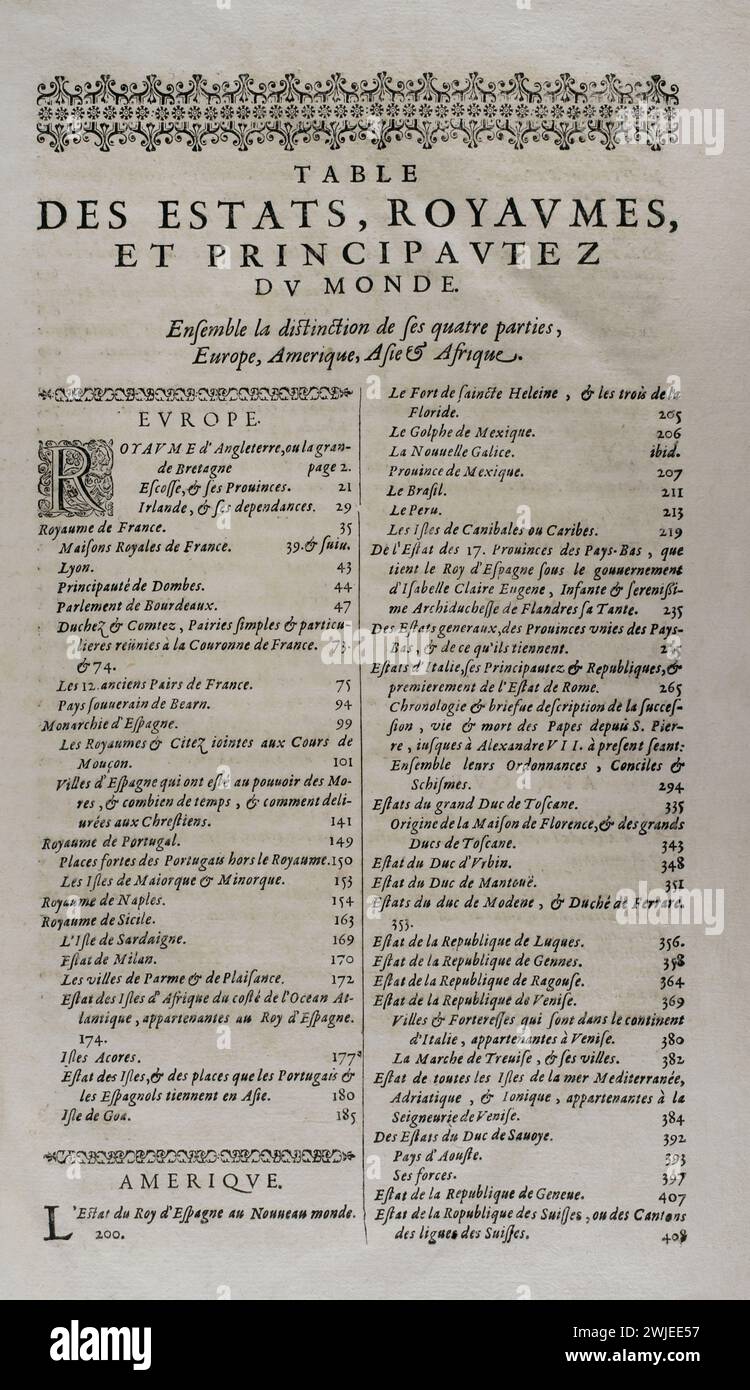 TABLE
DES ESTATS, ROYAVMES,
ET PRINCIPAVTEZ
DV MONDE.
Enſemble la diſtinction de ſes quatre parties,
Europe, Amerique, Aſie & Afrique.
EVROPE.
ROYAVME d'Angleterre, ou la gran-
de Bretagne page 2.
Eſcoſſe, & ſes Prouinces. 21
Irlande, & ſes dependances. 29
Royaume de France. 35
Maiſons Royales de France. 39. & ſuiu.
Lyon. 43
Principauté de Dombes. 44
Parlement de Bourdeaux. 47
Duchez & Comtez, Pairies ſimples & particu-
lieres reünies à la Couronne de France. 73.
& 74.
Les 12. anciens Pairs de France. 75
Pays ſouuerain de Bearn. 94
Monarchie d'Eſpagne. 99
Les Royaumes & Citez iointes aux Cours de
Mouçon. 101
Villes d'Eſpagne qui ont eſté au pouuoir des Mo-
res, & combien de temps, & comment deli-
urées aux Chreſtiens. 141
Royaume de Portugal. 149
Places fortes des Portugais hors le Royaume. 150
Les Iſles de Maiorque & Minorque. 153
Royaume de Naples. 154
Royaume de Sicile. 163
L'Iſle de Sardaigne. 169
Eſtat de Milan. 170
Les villes de Parme & de Plaiſance. 172
Eſtat des Iſles d'Afrique du coſté de l'Ocean At-
lantique, appartenantes au Roy d'Eſpagne.
174.
Iſles Acores. 177
Eſtat des Iſles, & des places que les Portugais &
les Eſpagnols tiennent en Aſie. 180
Iſle de Goa. 185
AMERIQVE.
L'Eſtat du Roy d'Eſpagne au Nouueau monde.
200.
Le Fort de ſaincte Heleine, & les trois de la
Floride. 205
Le Golphe de Mexique. 206
La Nouuelle Galice. ibid.
Prouince de Mexique. 207
Le Braſil. 211
Le Peru. 213
Les Iſles de Canibales ou Caribes. 219
De l'Eſtat des 17. Prouinces des Pays-Bas, que
tient le Roy d'Eſpagne ſous le gouuernement
d'Iſabelle Claire Eugene, Infante & ſereniſſi-
me Archiducheſſe de Flandres ſa Tante. 235
Des Eſtats generaux, des Prouinces vnies des Pays-
Bas, & de ce qu'ils tiennent.
Eſtats d'Italie, ſes Principautez & Republiques, &
premierement de l'Eſtat de Rome. 265
Chronologie & briefue deſcription de la ſucceſ-
ſion, vie & mort des Papes depuis S. Pier-
re, iuſques à Alexandre VII. à preſent ſeant:
Enſemble leurs Ordonnances, Conciles &
Schiſmes. 294
Eſtats du grand Duc de Toſcane. 335
Origine de la Maiſon de Florence, & des grands
Ducs de Toſcane. 343
Eſtat du Duc d'Vrbin. 348
Eſtat du Duc de Mantouë. 351
Eſtats du duc de Modene, & Duché de Ferrare.
353.
Eſtat de la Republique de Luques. 356.
Eſtat de la Republique de Gennes. 358
Eſtat de la Republique de Ragouſe. 364
Eſtat de la Republique de Veniſe. 369
Villes & Fortereſſes qui ſont dans le continent
d'Italie, appartenantes à Veniſe. 380
La Marche de Treuiſe, & ſes villes. 382
Eſtat de toutes les Iſles de la mer Mediterranée,
Adriatique, & Ionique, appartenantes à la
Seigneurie de Veniſe. 384
Des Eſtats du Duc de Sauoye. 392
Pays d'Aouſte. 393
Ses forces. 397
Eſtat de la Republique de Geneue. 407
Eſtat de la Ropublique des Suiſſes, ou des Cantons
des ligues des Suiſſes. 408
alamy
alamy
alamy
alamy
Image ID: 2WJEE57
www.alamy.com